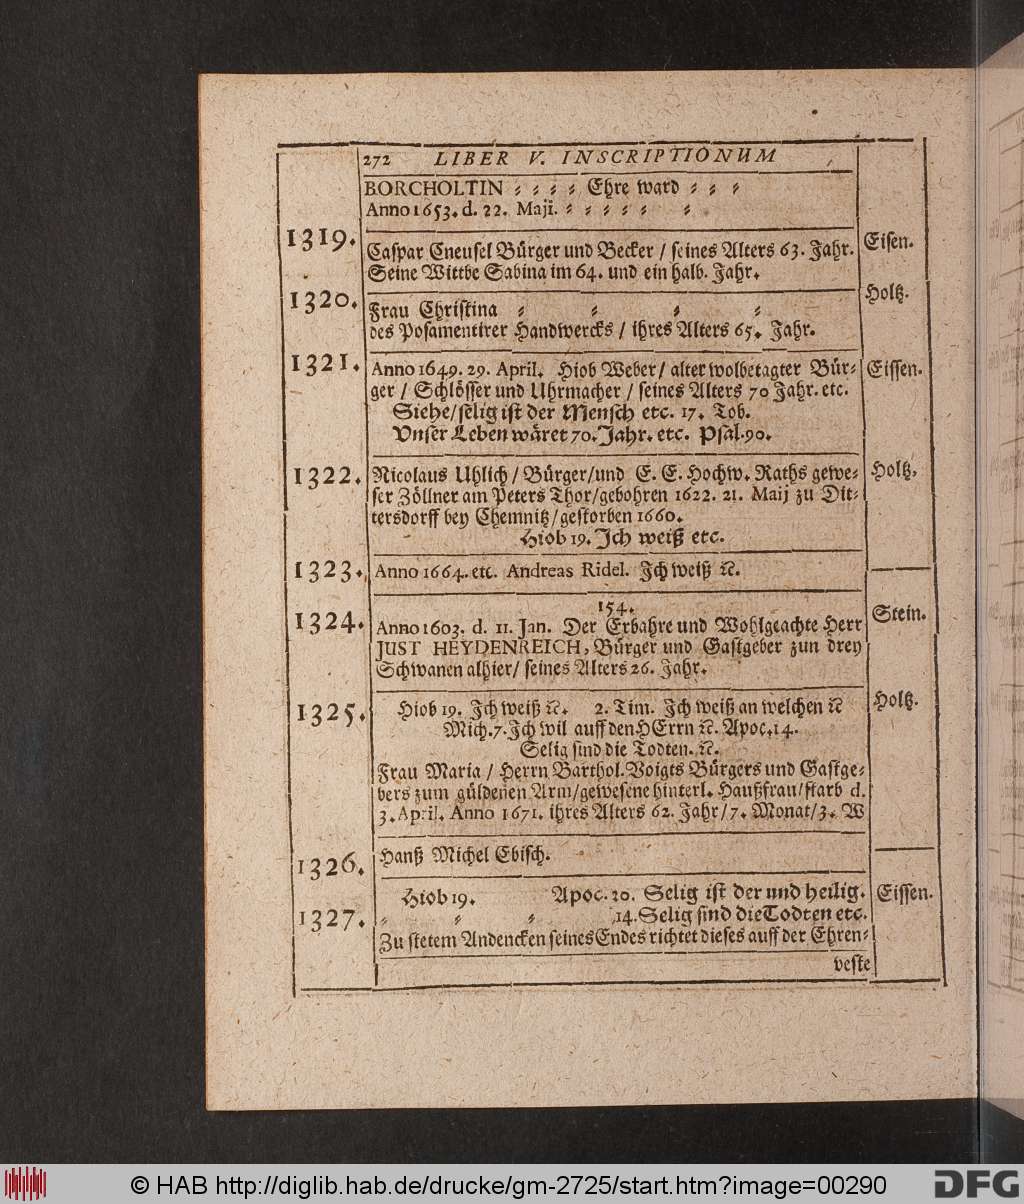 272 LIBER V. INSCRIPTIONUM
BORCHOLTIN ⸗ ⸗ ⸗ ⸗ Ehre ward ⸗ ⸗ ⸗
Anno 1653. d. 22. Maji. ⸗ ⸗ ⸗ ⸗ ⸗ ⸗
1319. Caspar Cneusel Bürger und Becker / seines Alters 63. Jahr. Eisen.
Seine Wittbe Sabina im 64. und ein halb. Jahr.
1320. Frau Christina ⸗ ⸗ ⸗ ⸗ Holtz.
des Posamentirer Handwercks / ihres Alters 65. Jahr.
1321. Anno 1649. 29. April. Hiob Weber / alter wolbetagter Bür⸗ Eissen.
ger / Schlösser und Uhrmacher / seines Alters 70 Jahr. etc.
Siehe / selig ist der Mensch etc. 17. Tob.
Unser Leben wäret 70. Jahr. etc. Psal. 90.
1322. Nicolaus Uhlich / Bürger / und E. E. Hochw. Raths gewe⸗ Holtz.
ser Zöllner am Peters Thor / gebohren 1622. 21. Maij zu Dit⸗
tersdorff bey Chemnitz / gestorben 1660.
Hiob 19. Ich weiß etc.
1323. Anno 1664. etc. Andreas Ridel. Ich weiß ꝛc.
154.
1324. Anno 1603. d. 11. Jan. Der Erbahre und Wohlgeachte Herr Stein.
JUST HEYDENREICH, Bürger und Gastgeber zun drey
Schwanen alhier / seines Alters 26. Jahr.
1325. Hiob 19. Ich weiß ꝛc. 2. Tim. Ich weiß an welchen ꝛc Holtz.
Mich. 7. Ich wil auff den HErrn ꝛc. Apoc. 14.
Selig sind die Todten. ꝛc.
Frau Maria / Herrn Barthol. Voigts Bürgers und Gastge⸗
bers zum güldenen Arm / gewesene hinterl. Haußfrau / starb d.
3. April. Anno 1671. ihres Alters 62. Jahr / 7. Monat / 3. W
1326. Hanß Michel Ebisch.
1327. Hiob 19. Apoc. 20. Selig ist der und heilig. Eissen.
⸗ ⸗ ⸗ 14. Selig sind die Todten etc.
Zu stetem Andencken seines Endes richtet dieses auff der Ehren⸗
veste
© HAB http://diglib.hab.de/drucke/gm-2725/start.htm?image=00290
DFG